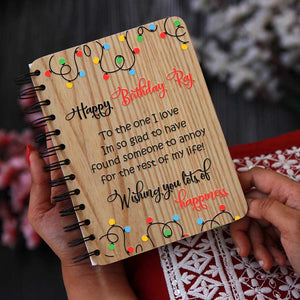 Happy Birthday Roy
To the one I love
Im so glad to have
found someone to annoy
for the rest of my life!
Wishing you lots of
happiness